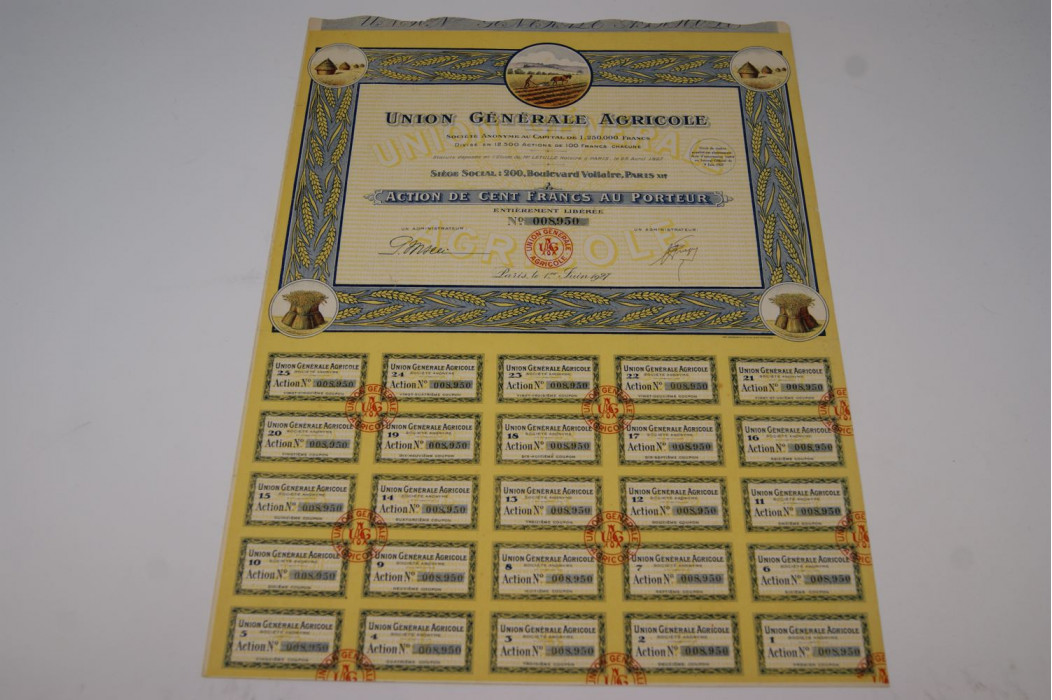 UNION GÉNÉRALE AGRICOLE
SOCIÉTÉ ANONYME AU CAPITAL DE 1.250.000 FRANCS
DIVISÉ EN 12.500 ACTIONS DE 100 FRANCS CHACUNE
SIÈGE SOCIAL : 200, Boulevard Voltaire, PARIS
ACTION DE CENT FRANCS AU PORTEUR
ENTIÈREMENT LIBÉRÉE
No 008,950
UN ADMINISTRATEUR UN ADMINISTRATEUR
UNION GÉNÉRALE
AGRICOLE
Paris, le 1er Juin 1927
UNION GÉNÉRALE AGRICOLE
25 SOCIÉTÉ ANONYME
Action No 008,950
VINGT-CINQUIÈME COUPON
UNION GÉNÉRALE AGRICOLE
24 SOCIÉTÉ ANONYME
Action No 008,950
VINGT-QUATRIÈME COUPON
UNION GÉNÉRALE AGRICOLE
23 SOCIÉTÉ ANONYME
Action No 008,950
VINGT-TROISIÈME COUPON
UNION GÉNÉRALE AGRICOLE
22 SOCIÉTÉ ANONYME
Action No 008,950
VINGT-DEUXIÈME COUPON
UNION GÉNÉRALE AGRICOLE
21 SOCIÉTÉ ANONYME
Action No 008,950
VINGT-ET-UNIÈME COUPON
UNION GÉNÉRALE AGRICOLE
20 SOCIÉTÉ ANONYME
Action No 008,950
VINGTIÈME COUPON
UNION GÉNÉRALE AGRICOLE
19 SOCIÉTÉ ANONYME
Action No 008,950
DIX-NEUVIÈME COUPON
UNION GÉNÉRALE AGRICOLE
18 SOCIÉTÉ ANONYME
Action No 008,950
DIX-HUITIÈME COUPON
UNION GÉNÉRALE AGRICOLE
17 SOCIÉTÉ ANONYME
Action No 008,950
DIX-SEPTIÈME COUPON
UNION GÉNÉRALE AGRICOLE
16 SOCIÉTÉ ANONYME
Action No 008,950
SEIZIÈME COUPON
UNION GÉNÉRALE AGRICOLE
15 SOCIÉTÉ ANONYME
Action No 008,950
QUINZIÈME COUPON
UNION GÉNÉRALE AGRICOLE
14 SOCIÉTÉ ANONYME
Action No 008,950
QUATORZIÈME COUPON
UNION GÉNÉRALE AGRICOLE
13 SOCIÉTÉ ANONYME
Action No 008,950
TREIZIÈME COUPON
UNION GÉNÉRALE AGRICOLE
12 SOCIÉTÉ ANONYME
Action No 008,950
DOUZIÈME COUPON
UNION GÉNÉRALE AGRICOLE
11 SOCIÉTÉ ANONYME
Action No 008,950
ONZIÈME COUPON
UNION GÉNÉRALE AGRICOLE
10 SOCIÉTÉ ANONYME
Action No 008,950
DIXIÈME COUPON
UNION GÉNÉRALE AGRICOLE
9 SOCIÉTÉ ANONYME
Action No 008,950
NEUVIÈME COUPON
UNION GÉNÉRALE AGRICOLE
8 SOCIÉTÉ ANONYME
Action No 008,950
HUITIÈME COUPON
UNION GÉNÉRALE AGRICOLE
7 SOCIÉTÉ ANONYME
Action No 008,950
SEPTIÈME COUPON
UNION GÉNÉRALE AGRICOLE
6 SOCIÉTÉ ANONYME
Action No 008,950
SIXIÈME COUPON
UNION GÉNÉRALE AGRICOLE
5 SOCIÉTÉ ANONYME
Action No 008,950
CINQUIÈME COUPON
UNION GÉNÉRALE AGRICOLE
4 SOCIÉTÉ ANONYME
Action No 008,950
QUATRIÈME COUPON
UNION GÉNÉRALE AGRICOLE
3 SOCIÉTÉ ANONYME
Action No 008,950
TROISIÈME COUPON
UNION GÉNÉRALE AGRICOLE
2 SOCIÉTÉ ANONYME
Action No 008,950
DEUXIÈME COUPON
UNION GÉNÉRALE AGRICOLE
1 SOCIÉTÉ ANONYME
Action No 008,950
PREMIER COUPON